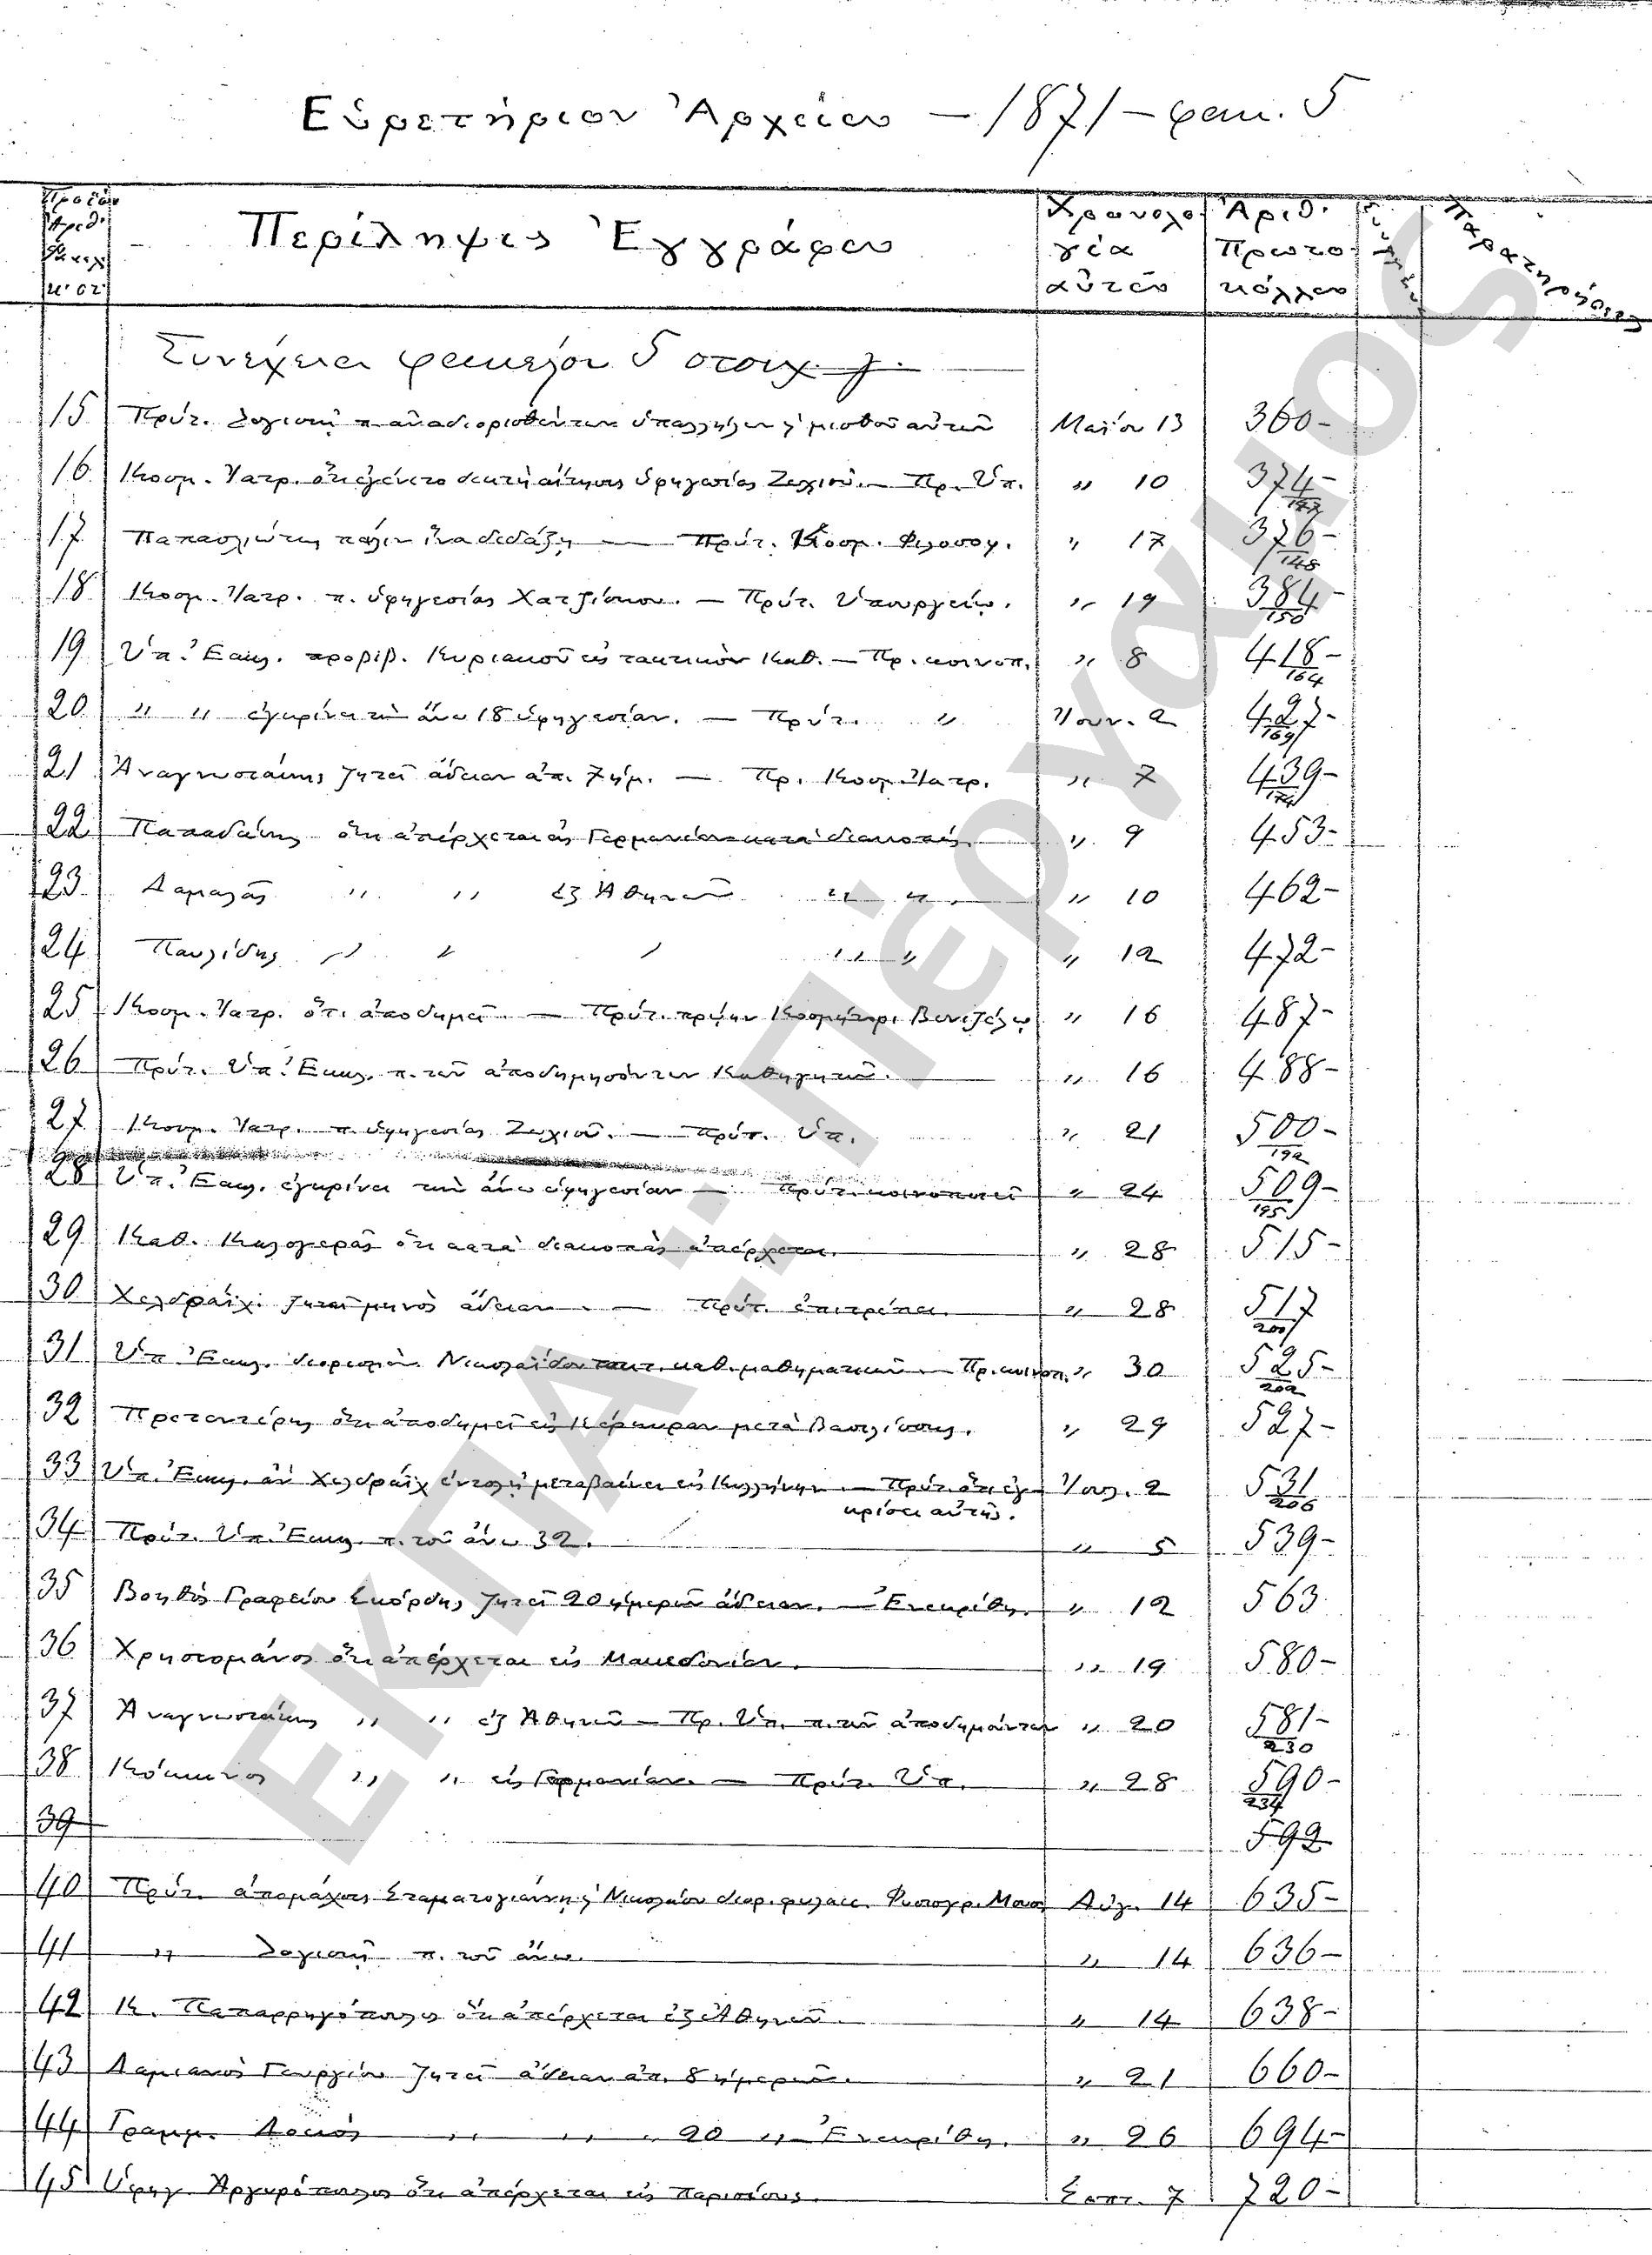 Εὑρετήριον Ἀρχείου – 1871 – φακ. 5
Περίληψις Ἐγγράφου
Χρονολογία αὐτοῦ
Ἀριθ. Πρωτοκόλλου
Παρατηρήσεις
Συνέχεια φακέλου 5 στοιχ.
15 Πρύτ. Λογιστῇ π. ἀναδιορισθέντων ὑπαλλήλων μισθοῦ αὐτῶν Μαΐου 13 360-
16 Κοσμ. Ἰατρ. ὅτι ἐγένετο δεκτὴ αἴτησις ὑφηγεσίας Ζωχιοῦ. — Πρ. Ὑπ. " 10 374- 147
17 Παπασλιώτης πάλιν ἵνα διδάξῃ — Πρύτ. Κοσμ. Φιλοσοφ. " 17 376- 148
18 Κοσμ. Ἰατρ. π. ὑφηγεσίας Χατζίσκου. — Πρύτ. Ὑπουργείῳ. " 19 384- 150
19 Ὑπ. Ἐκκλ. προβιβ. Κυριακοῦ εἰς τακτικὸν Καθ. — Πρ. κοινοπ. " 8 418- 164
20 " " ἐγκρίνει τὴν ἄνω 18 ὑφηγεσίαν. — Πρύτ. " Ἰουν. 2 427- 169
21 Ἀναγνωστάκης ζητεῖ ἄδειαν ἀπ. — Πρ. Κοσμ. Ἰατρ. " 7 439- 174
22 Παπαδάκης ὅτι ἀπέρχεται εἰς Γερμανίαν κατὰ διακοπάς. " 9 453-
23 Δαμαλᾶς " " ἐξ Ἀθηνῶν " " " 10 462-
24 Παυλίδης " " " " " " 12 472-
25 Κοσμ. Ἰατρ. ὅτι ἀποδημεῖ — Πρύτ. πρώην Κοσμήτορι Βενιζέλῳ " 16 487-
26 Πρύτ. Ὑπ. Ἐκκλ. π. τῶν ἀποδημησόντων Καθηγητῶν. " 16 488-
27 Κοσμ. Ἰατρ. π. ὑφηγεσίας Ζωχιοῦ. — Πρύτ. Ὑπ. " 21 500- 192
28 Ὑπ. Ἐκκλ. ἐγκρίνει τὴν ἄνω ὑφηγεσίαν — Πρύτ. κοινοποιεῖ " 24 509- 195
29 Καθ. Καλογερᾶς ὅτι κατὰ διακοπὰς ἀπέρχεται. " 28 515-
30 Χελδράϊχ ζητεῖ μηνὸς ἄδειαν. — Πρύτ. ἐπιτρέπει. " 28 517 200
31 Ὑπ. Ἐκκλ. διορισμὸν Νικολαΐδου τακτ. καθ. μαθηματικῶν — Πρ. κοινοπ. " 30 525- 202
32 Πρετεντέρης ὅτι ἀποδημεῖ εἰς Κέρκυραν μετὰ Βασιλίσσης. " 29 527-
33 Ὑπ. Ἐκκλ. ἂν Χελδράϊχ ἐντολῇ μεταβαίνει εἰς Κυλλήνην — Πρύτ. ὅτι ἐγ- Ἰουλ. 2 531 206
κρίσει αὐτῆς.
34 Πρύτ. Ὑπ. Ἐκκλ. π. τοῦ ἄνω 32. " 5 539-
35 Βοηθὸς Γραφείου Σκόρδης ζητεῖ 20 ἡμερῶν ἄδειαν. — Ἐνεκρίθη. " 12 563
36 Χρηστομάνος ὅτι ἀπέρχεται εἰς Μακεδονίαν. " 19 580-
37 Ἀναγνωστάκης " " ἐξ Ἀθηνῶν — Πρ. Ὑπ. π. τῶν ἀποδημούντων " 20 581- 230
38 Κόκκινος " " εἰς Γερμανίαν. — Πρύτ. Ὑπ. " 28 590- 234
39 592
40 Πρύτ. ἀπομάχους Σταματογιάννης Νικολάου διορ. φύλακ. Φυσιογρ. Μουσ. Αὐγ. 14 635-
41 " Λογιστῇ π. τοῦ ἄνω. " 14 636-
42 Κ. Παπαρρηγόπουλος ὅτι ἀπέρχεται ἐξ Ἀθηνῶν. " 14 638-
43 Δαμιανὸς Γεωργίου ζητεῖ ἄδειαν ἀπ. 8 ἡμερῶν. " 21 660-
44 Γραμμ. Δοκὸς " " " 20 " Ἐνεκρίθη. " 26 694-
45 Ὑφηγ. Ἀργυρόπουλος ὅτι ἀπέρχεται εἰς Παρισίους. Σεπτ. 7 720-
ΕΚΠΑ.: Πέργαμος